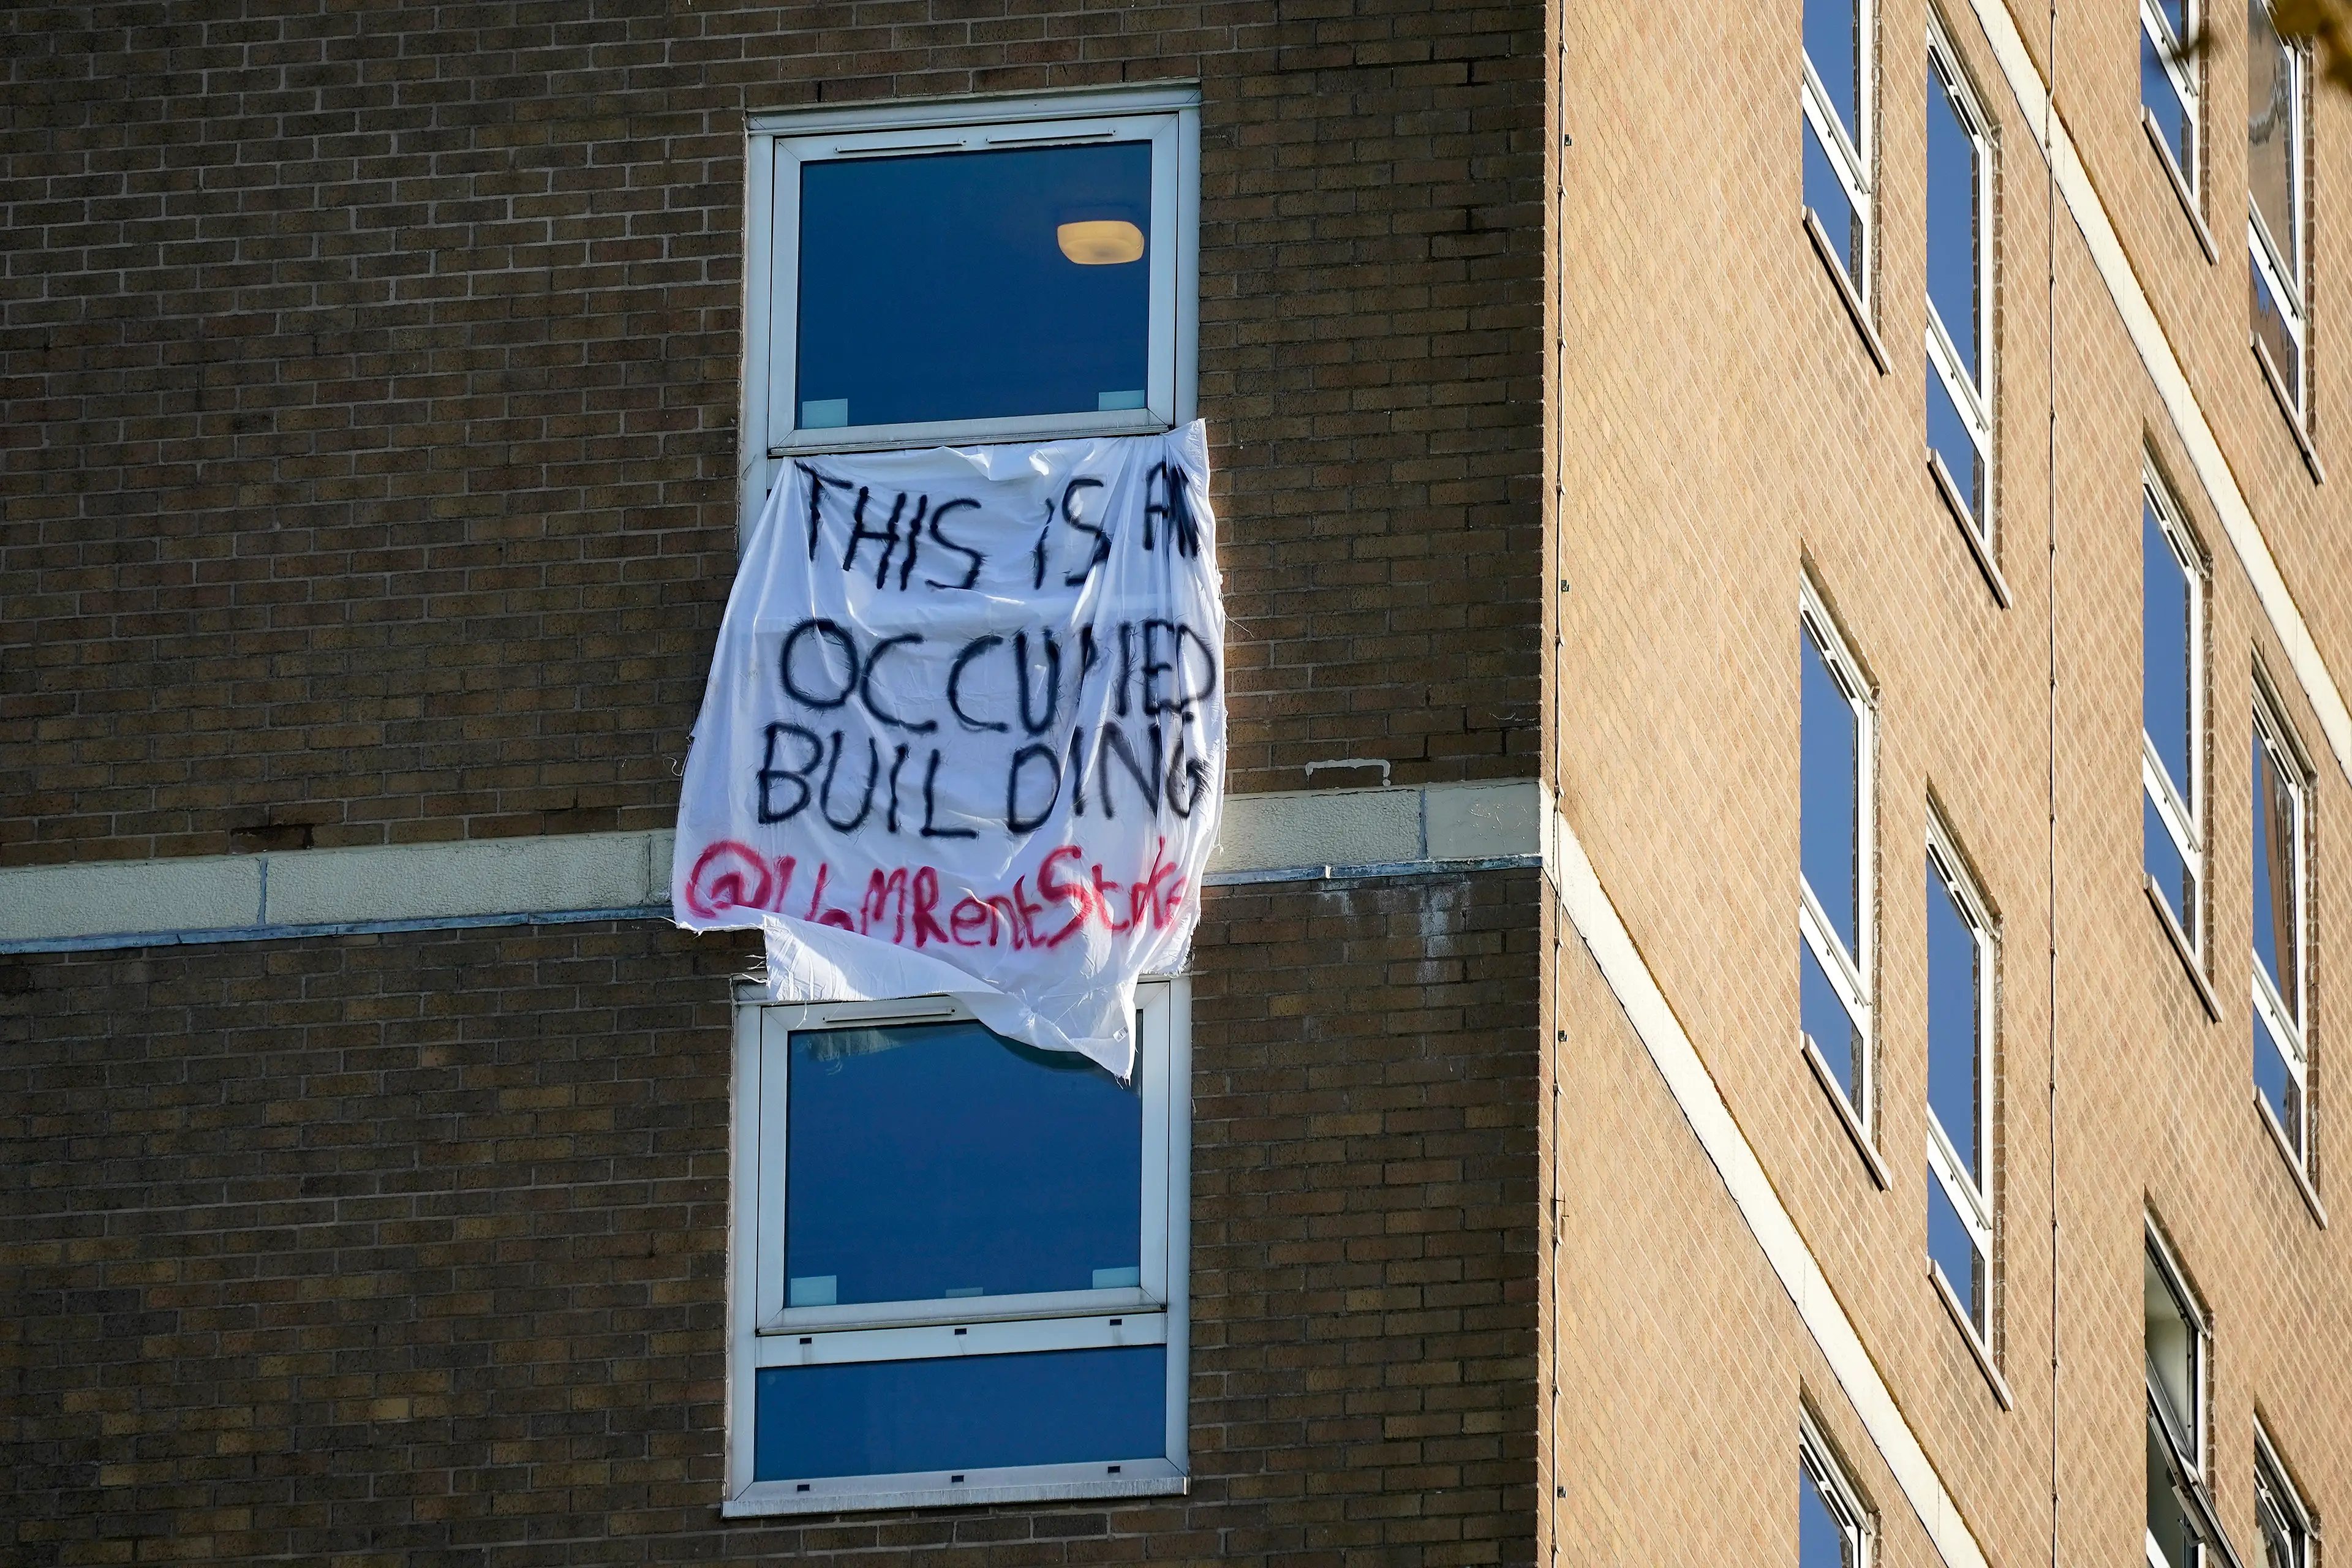 THIS IS AN
OCCUPIED
BUILDING
@UoMRentStrike